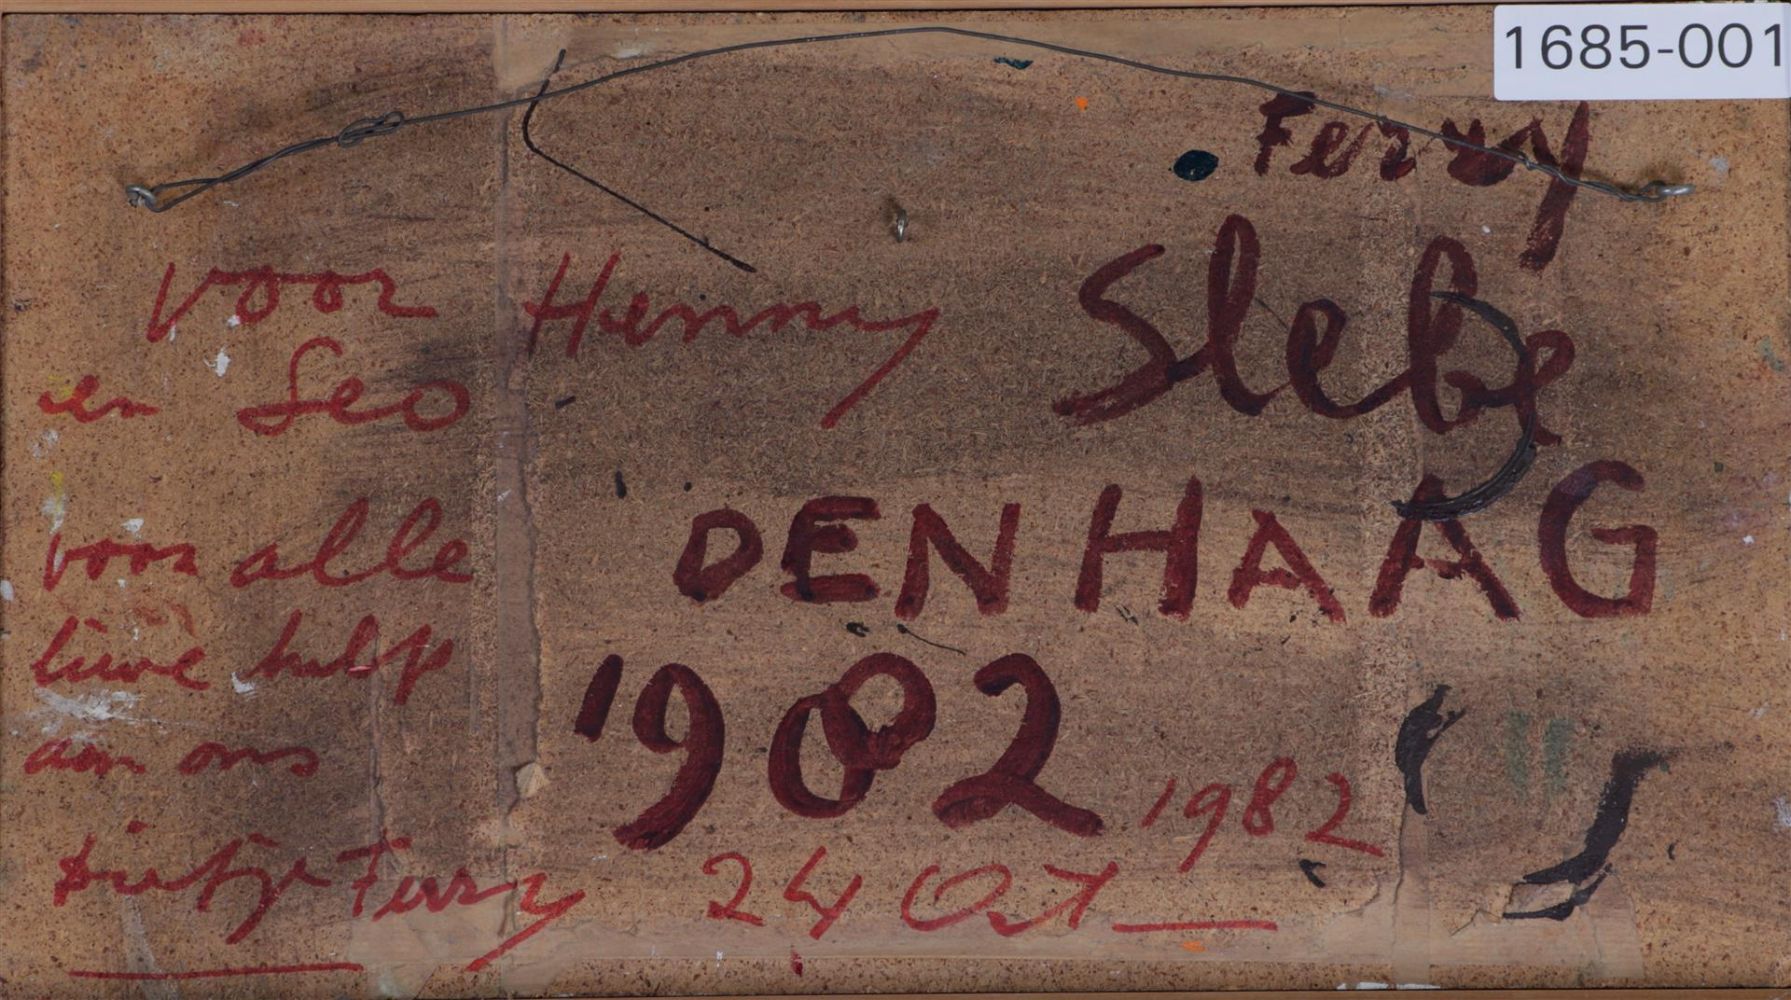 1685-001
Ferry
Slebe
DEN HAAG
1982
voor Henny
en Leo
voor alle
liuve hulp
aan ons
Ferry 24 Oct 1982